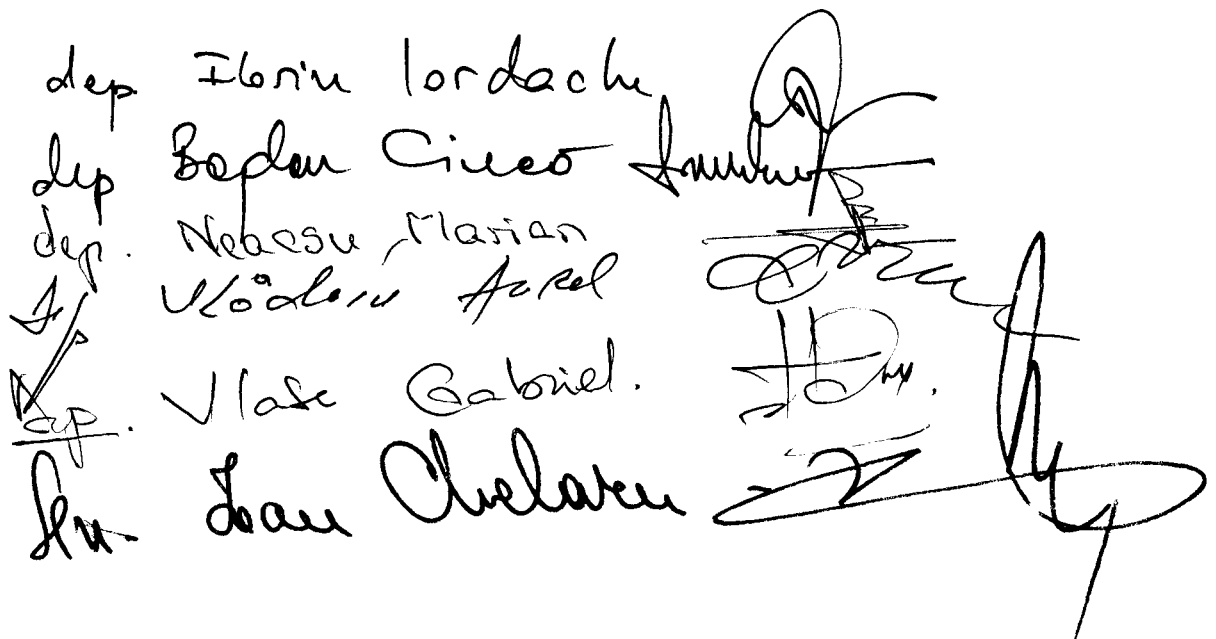 dep. Florin Iordache
dep Bogdan Ciucă
dep. Neacșu Marian
Vlădoiu Aurel
dep. Vlase Gabriel.
Sen. Ioan Chelaru